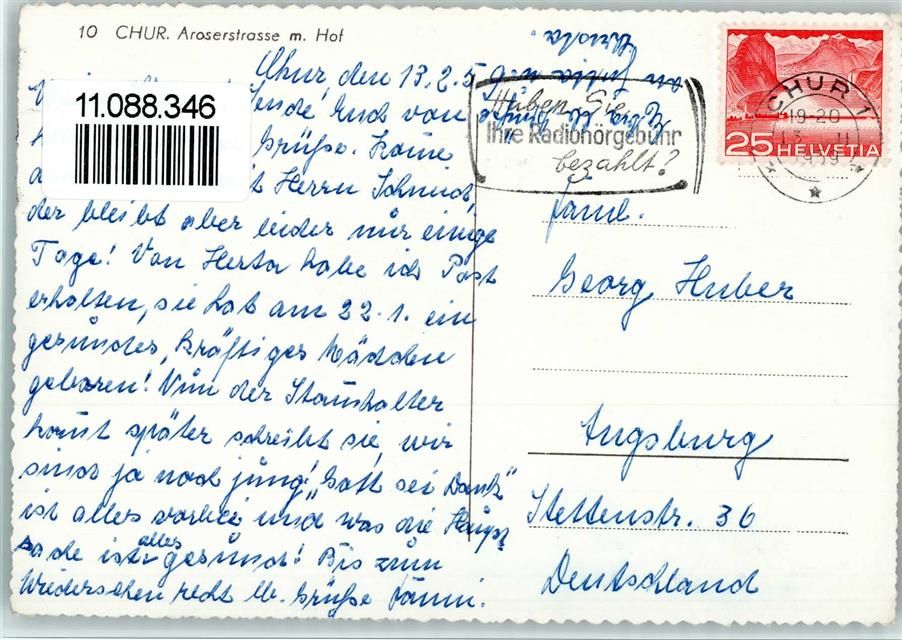 10 CHUR. Aroserstrasse m. Hof
Chur, den 13.2.5
11.088.346
ende und von
Grüße. Komme
Herrn Schmidt,
der bleibt aber leider nur einige
Tage! Von Herta habe ich Post
erhalten, sie hat am 22.1. ein
gesundes, kräftiges Mädchen
geboren! Nun der Stammhalter
kommt später schreibt sie, wir
sind ja noch jung! "Gott sei Dank"
ist alles vorbei und was die Haupt
sache ist alles gesund! Bis zum
Wiedersehen recht lb. Grüße Fanni.
von
Haben Sie
Ihre Radiohörgebühr
bezahlt?
CHUR 1
19-20
25 HELVETIA
Faml.
Georg Huber
Augsburg
Stettenstr. 36
Deutschland